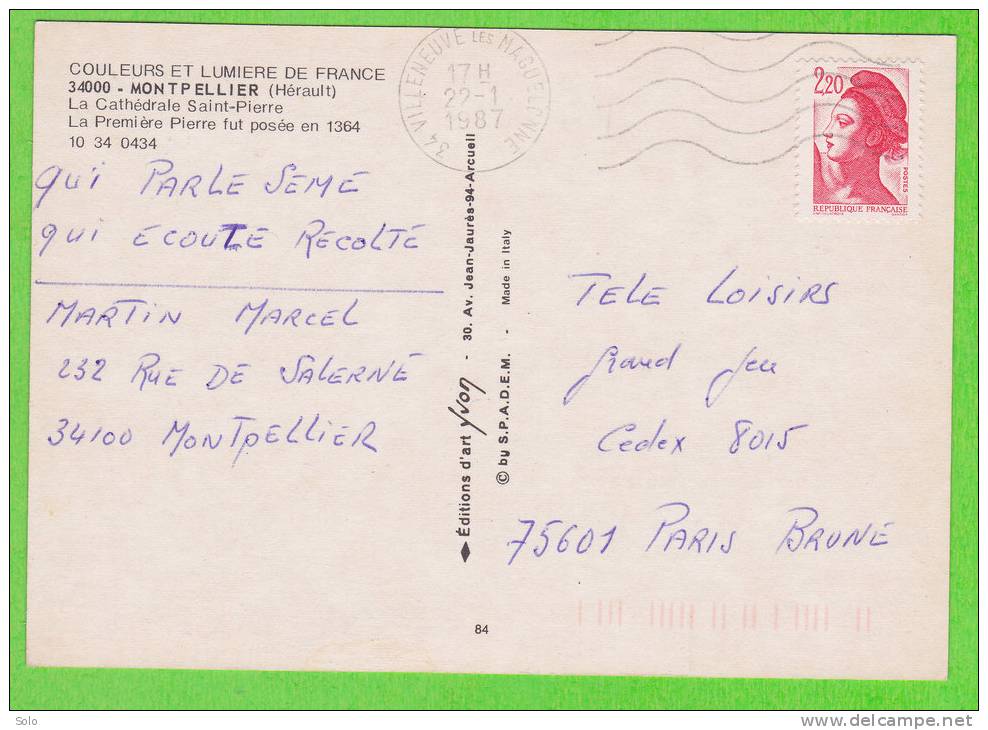 COULEURS ET LUMIERE DE FRANCE
34000 - MONTPELLIER (Hérault)
La Cathédrale Saint-Pierre
La Première Pierre fut posée en 1364
10 34 0434
34 VILLENEUVE LES MAGUELONNE
17 H
22-1
1987
2,20
POSTES
REPUBLIQUE FRANÇAISE
QUI PARLE SEME
QUI ECOUTE RECOLTE
MARTIN MARCEL
232 RUE DE SALERNE
34100 MONTPELLIER
◆ Éditions d'art Yvon - 30. Av. Jean-Jaurès-94-Arcueil
© by S.P.A.D.E.M. - Made in Italy
TELE LOISIRS
Grand Jeu
Cedex 8015
75601 PARIS BRUNE
84
Solo
www.delcampe.net